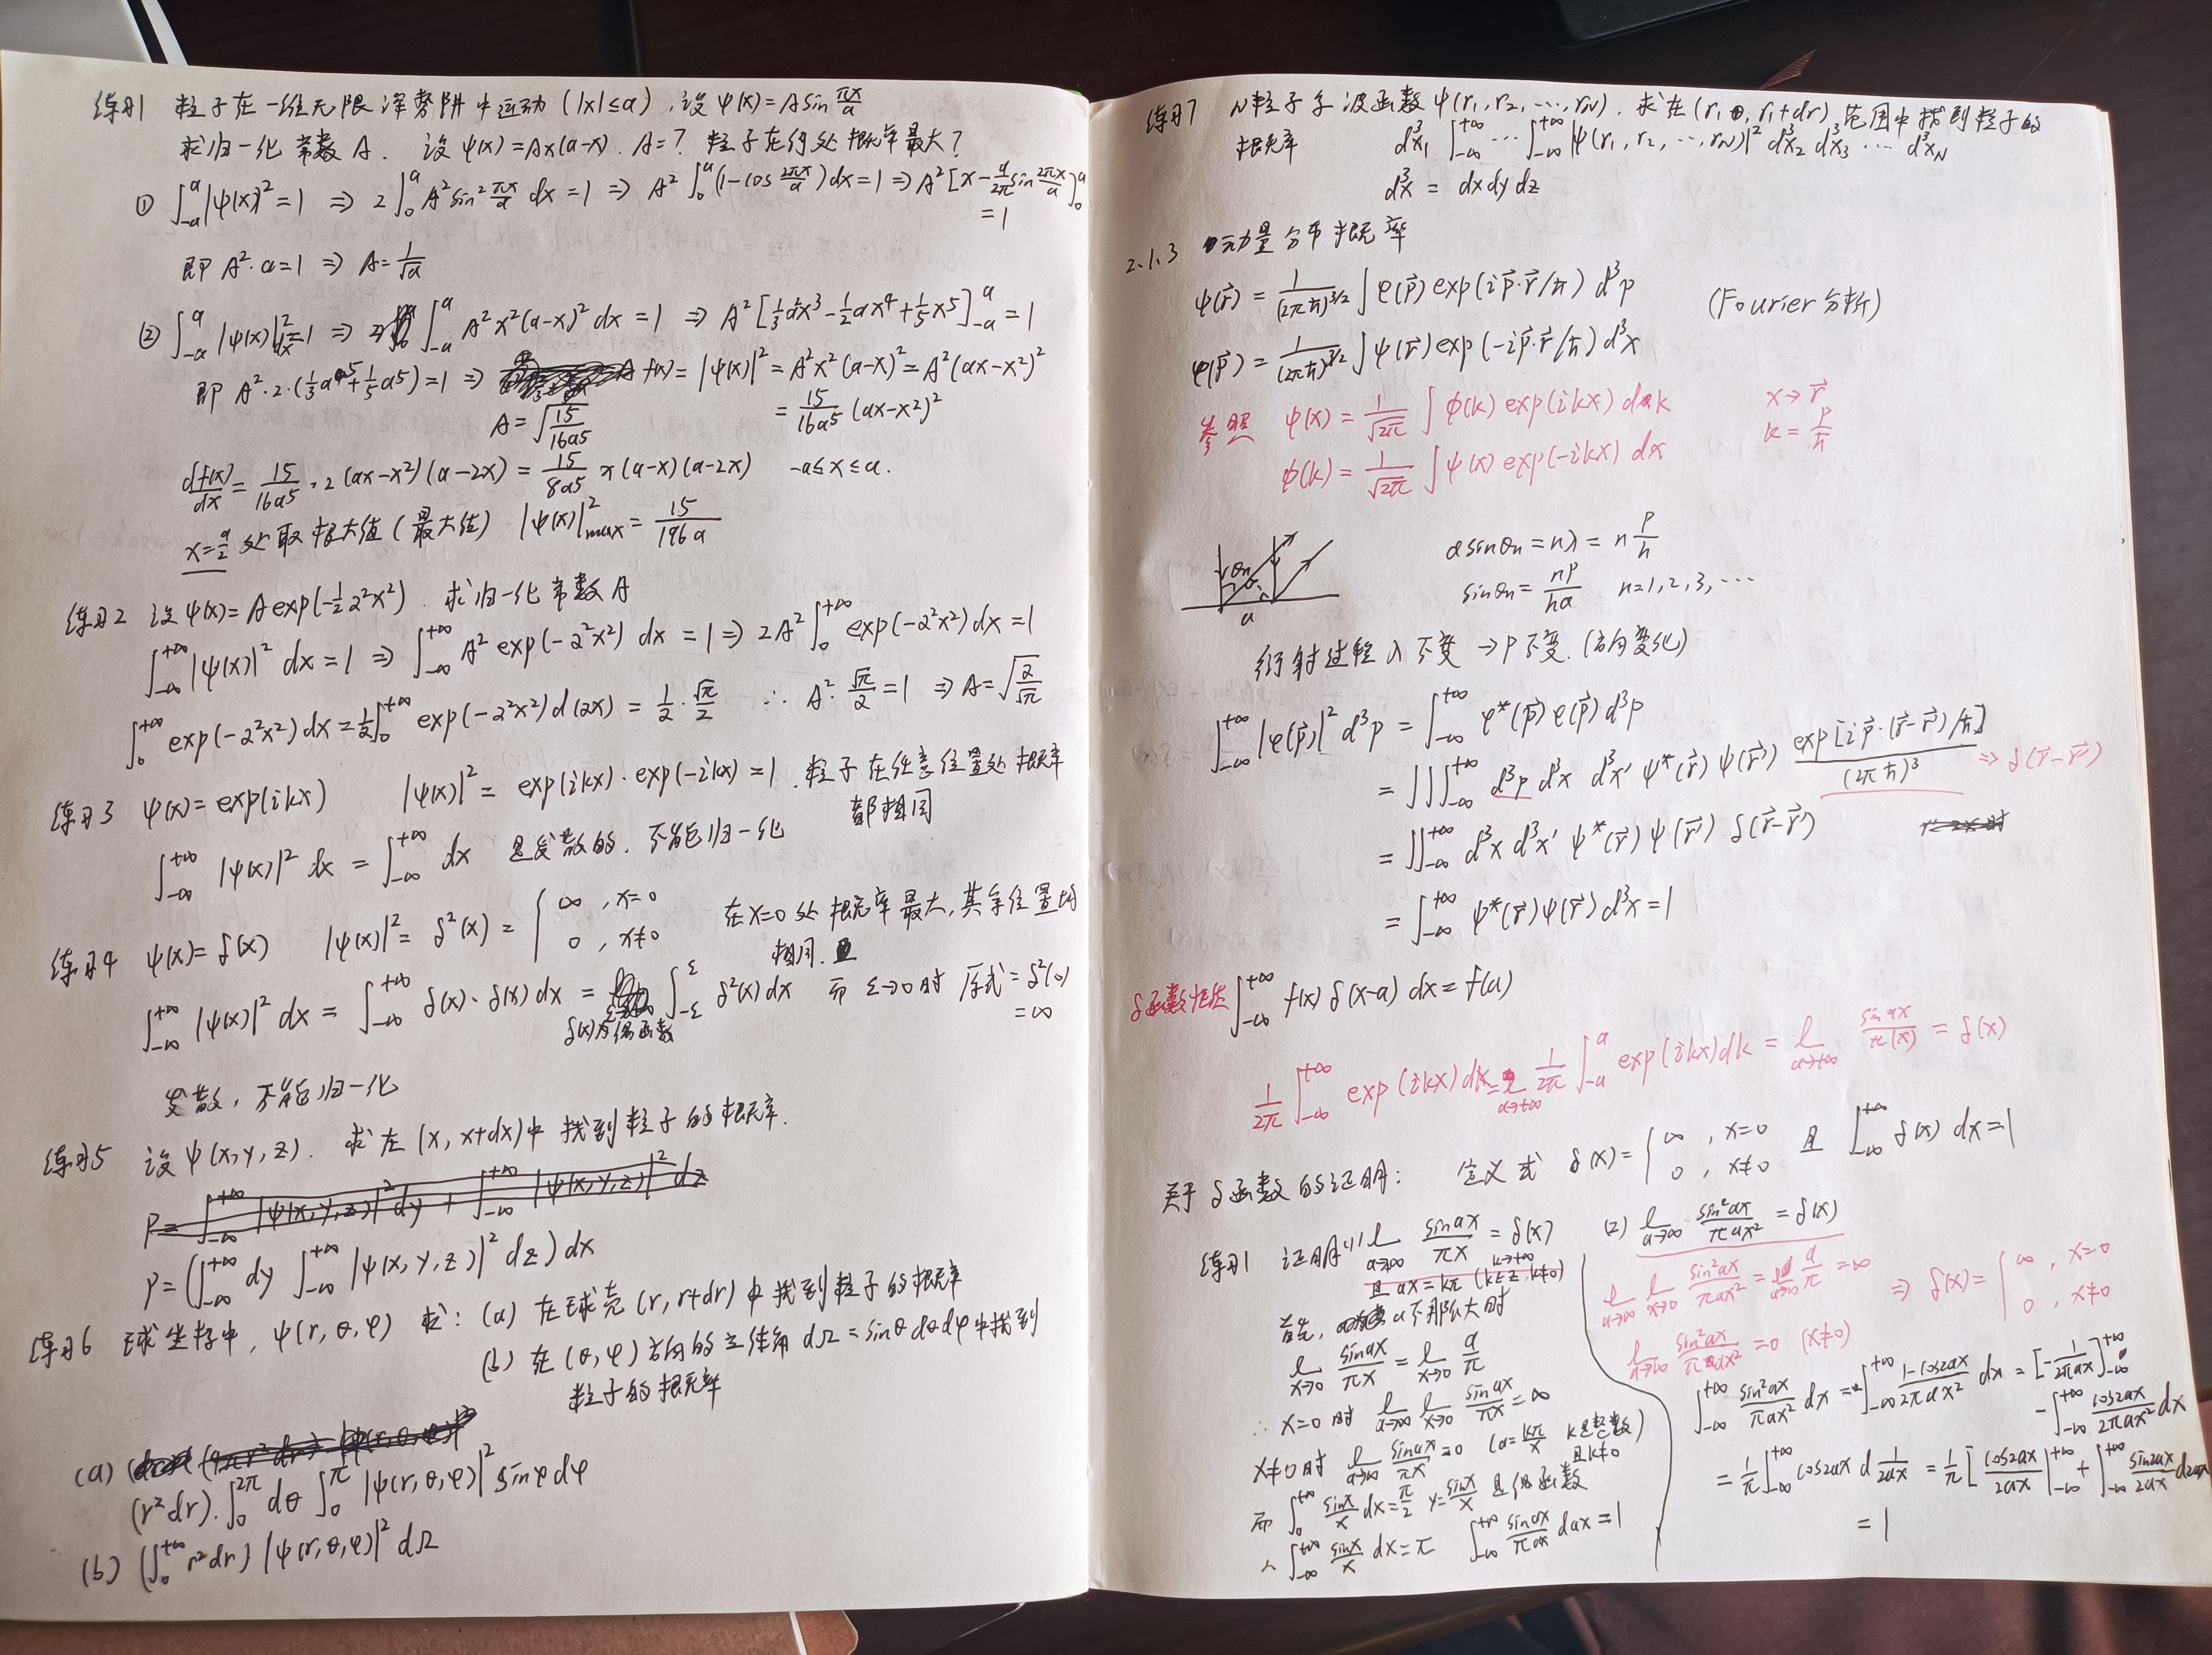 练习1 粒子在一维无限深势阱中运动 (|x|≤a). 设 ψ(x)=A sin πx/a
求归一化常数 A. 设 ψ(x)=Ax(a-x). A=? 粒子在何处概率最大?
① ∫_{-a}^{a} |ψ(x)|²=1 ⇒ 2∫_0^a A² sin² πx/a dx=1 ⇒ A² ∫_0^a (1-cos 2πx/a) dx=1 ⇒ A² [x - a/2π sin 2πx/a]_0^a
=1
即 A²·a=1 ⇒ A=1/√a
② ∫_{-a}^{a} |ψ(x)|² dx=1 ⇒ ∫_{-a}^{a} A²x²(a-x)² dx=1 ⇒ A² [1/3 a²x³ - 1/2 ax⁴ + 1/5 x⁵]_{-a}^{a}=1
即 A²·2·(1/3 a⁵+1/5 a⁵)=1 ⇒ f(x)=|ψ(x)|²=A²x²(a-x)²=A²(ax-x²)²
A=√(15/16a⁵) = 15/16a⁵ (ax-x²)²
df(x)/dx = 15/16a⁵ · 2(ax-x²)(a-2x) = 15/8a⁵ x(a-x)(a-2x) -a≤x≤a.
x=a/2 处取极大值(最大值) |ψ(x)|²_max = 15/196a
练习2 设 ψ(x)=A exp(-1/2 α²x²). 求归一化常数A
∫_{-∞}^{+∞} |ψ(x)|² dx=1 ⇒ ∫_{-∞}^{+∞} A² exp(-α²x²) dx=1 ⇒ 2A² ∫_0^{+∞} exp(-α²x²) dx=1
∫_0^{+∞} exp(-α²x²) dx = 1/α ∫_0^{+∞} exp(-α²x²) d(αx) = 1/α · √π/2 ∴ A²·√π/α=1 ⇒ A=√(α/√π)
练习3 ψ(x)=exp(ikx) |ψ(x)|²=exp(ikx)·exp(-ikx)=1. 粒子在任意位置处概率
都相同
∫_{-∞}^{+∞} |ψ(x)|² dx = ∫_{-∞}^{+∞} dx 是发散的, 不能归一化
练习4 ψ(x)=δ(x) |ψ(x)|²=δ²(x)={∞, x=0 0, x≠0 在x=0处概率最大,其余位置均
相同.
∫_{-∞}^{+∞} |ψ(x)|² dx = ∫_{-∞}^{+∞} δ(x)·δ(x) dx = ∫_{-ε}^{ε} δ²(x) dx 而 ε→0时 原式=δ²(0)
δ(x)为偶函数 =∞
发散,不能归一化
练习5 设ψ(x,y,z). 求在(x, x+dx)中找到粒子的概率.
P=∫_{-∞}^{+∞} |ψ(x,y,z)|² dy + ∫_{-∞}^{+∞} |ψ(x,y,z)|² dz
P=(∫_{-∞}^{+∞} dy ∫_{-∞}^{+∞} |ψ(x,y,z)|² dz) dx
练习6 球坐标中, ψ(r,θ,φ) 求: (a) 在球壳(r, r+dr)中找到粒子的概率
(b) 在(θ,φ)方向的立体角 dΩ=sinθdθdφ中找到
粒子的概率
(a)
(r²dr)·∫_0^{2π} dθ ∫_0^π |ψ(r,θ,φ)|² sinφdφ
(b) (∫_0^{+∞} r²dr) |ψ(r,θ,φ)|² dΩ
练习7 N粒子 波函数 ψ(r₁,r₂,…,r_N). 求在(r₁, r₁+dr)范围中找到粒子的
概率 d³x₁ ∫_{-∞}^{+∞} ⋯ ∫_{-∞}^{+∞} |ψ(r₁,r₂,…,r_N)|² d³x₂ d³x₃ ⋯ d³x_N
d³x = dxdydz
2.1.3 动量分布概率
ψ(r⃗) = 1/(2πħ)^{3/2} ∫ φ(p⃗) exp(ip⃗·r⃗/ħ) d³p (Fourier分析)
φ(p⃗) = 1/(2πħ)^{3/2} ∫ ψ(r⃗) exp(-ip⃗·r⃗/ħ) d³x
参照 ψ(x) = 1/√2π ∫ φ(k) exp(ikx) dk x→r⃗
φ(k) = 1/√2π ∫ ψ(x) exp(-ikx) dx k=p/ħ
a sinθn = nλ = n p/h
θn
sinθn = np/ha n=1,2,3,…
a
衍射过程 λ不变→p不变.(方向变化)
∫_{-∞}^{+∞} |φ(p⃗)|² d³p = ∫_{-∞}^{+∞} φ*(p⃗)φ(p⃗) d³p
= ∭_{-∞}^{+∞} d³p d³x d³x′ ψ*(r⃗) ψ(r⃗′) exp[ip⃗·(r⃗-r⃗′)/ħ]/(2πħ)³ ⇒ δ(r⃗-r⃗′)
= ∬_{-∞}^{+∞} d³x d³x′ ψ*(r⃗) ψ(r⃗′) δ(r⃗-r⃗′)
= ∫_{-∞}^{+∞} ψ*(r⃗)ψ(r⃗) d³x=1
δ函数性质 ∫_{-∞}^{+∞} f(x) δ(x-a) dx=f(a)
1/2π ∫_{-∞}^{+∞} exp(ikx) dk = l_{a→+∞} 1/2π ∫_{-a}^{a} exp(ikx)dk = l_{a→+∞} sin ax/π(x) = δ(x)
关于δ函数的证明: 定义式 δ(x)={∞, x=0 0, x≠0 且 ∫_{-∞}^{+∞} δ(x) dx=1
练习1 证明(1) l_{a→∞} sin ax/πx = δ(x)
k→+∞
且 ax=kπ (k∈Z, k≠0)
首先, a不那么大时
l_{x→0} sin ax/πx = l_{x→0} a/π
∴ x=0时 l_{a→∞} l_{x→0} sin ax/πx = ∞
x≠0时 l_{a→∞} sin ax/πx = 0 (a=kπ/x k是整数 且k≠0)
而 ∫_0^{+∞} sin x/x dx=π/2 y=sin x/x 是偶函数
∴ ∫_{-∞}^{+∞} sin x/x dx=π ∫_{-∞}^{+∞} sin ax/πax dax=1
(2) l_{a→∞} sin²ax/πax² = δ(x)
l_{a→∞} l_{x→0} sin²ax/πax² = l_{a→∞} a/π = ∞
l_{a→∞} sin²ax/πax² = 0 (x≠0) ⇒ δ(x)={∞, x=0 0, x≠0
∫_{-∞}^{+∞} sin²ax/πax² dx = ∫_{-∞}^{+∞} 1-cos2ax/2πax² dx = [-1/2πax]_{-∞}^{+∞}
- ∫_{-∞}^{+∞} cos2ax/2πax² dx
= 1/π ∫_{-∞}^{+∞} cos2ax d 1/2ax = 1/π [cos2ax/2ax |_{-∞}^{+∞} + ∫_{-∞}^{+∞} sin2ax/2ax d2ax
= 1